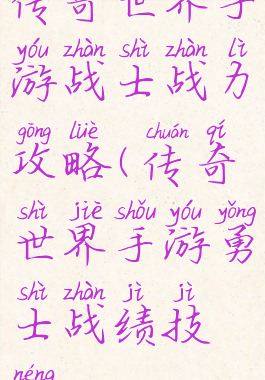 传奇世界手
yóu zhàn shì zhàn lì
游战士战力
gōng lüè chuán qí
攻略(传奇
shì jiè shǒu yóu yǒng
世界手游勇
shì zhàn jì jì
士战绩技
néng